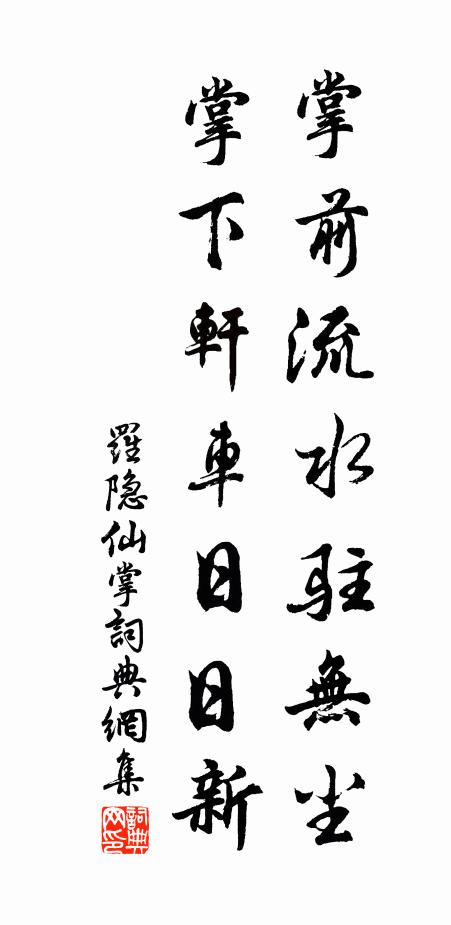 掌前流水駐無尘
掌下軒車日日新
羅隐仙掌詞典網集
詞典网印